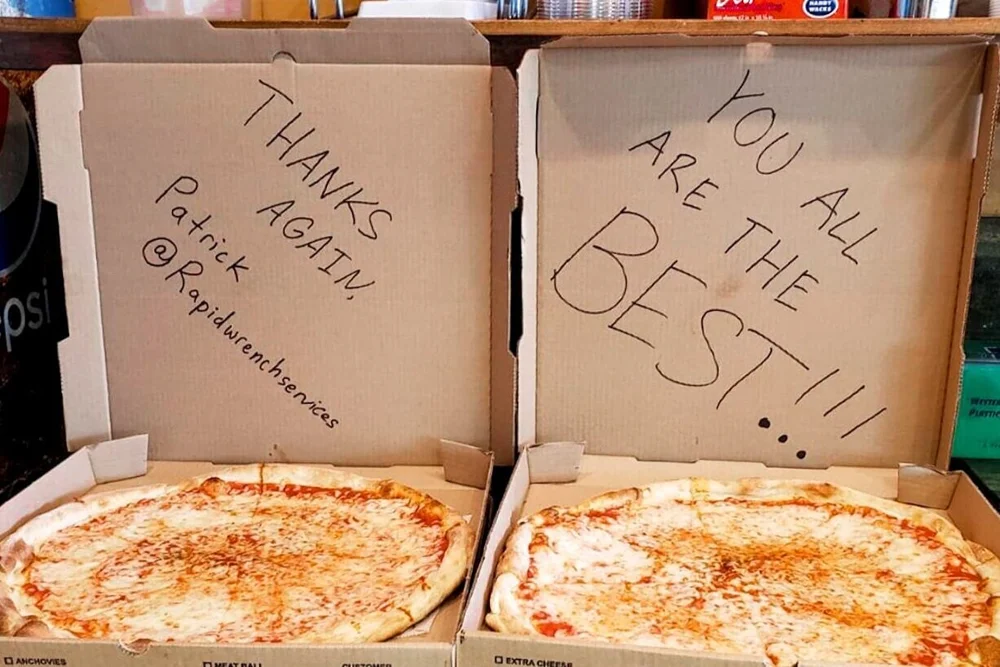 THANKS
AGAIN,
Patrick
@Rapidwrenchservices
YOU ALL
ARE THE
BEST!!!
epsi
HANDY
WACKS
ANCHOVIES
MEAT BALL
CUSTOMER
EXTRA CHEESE